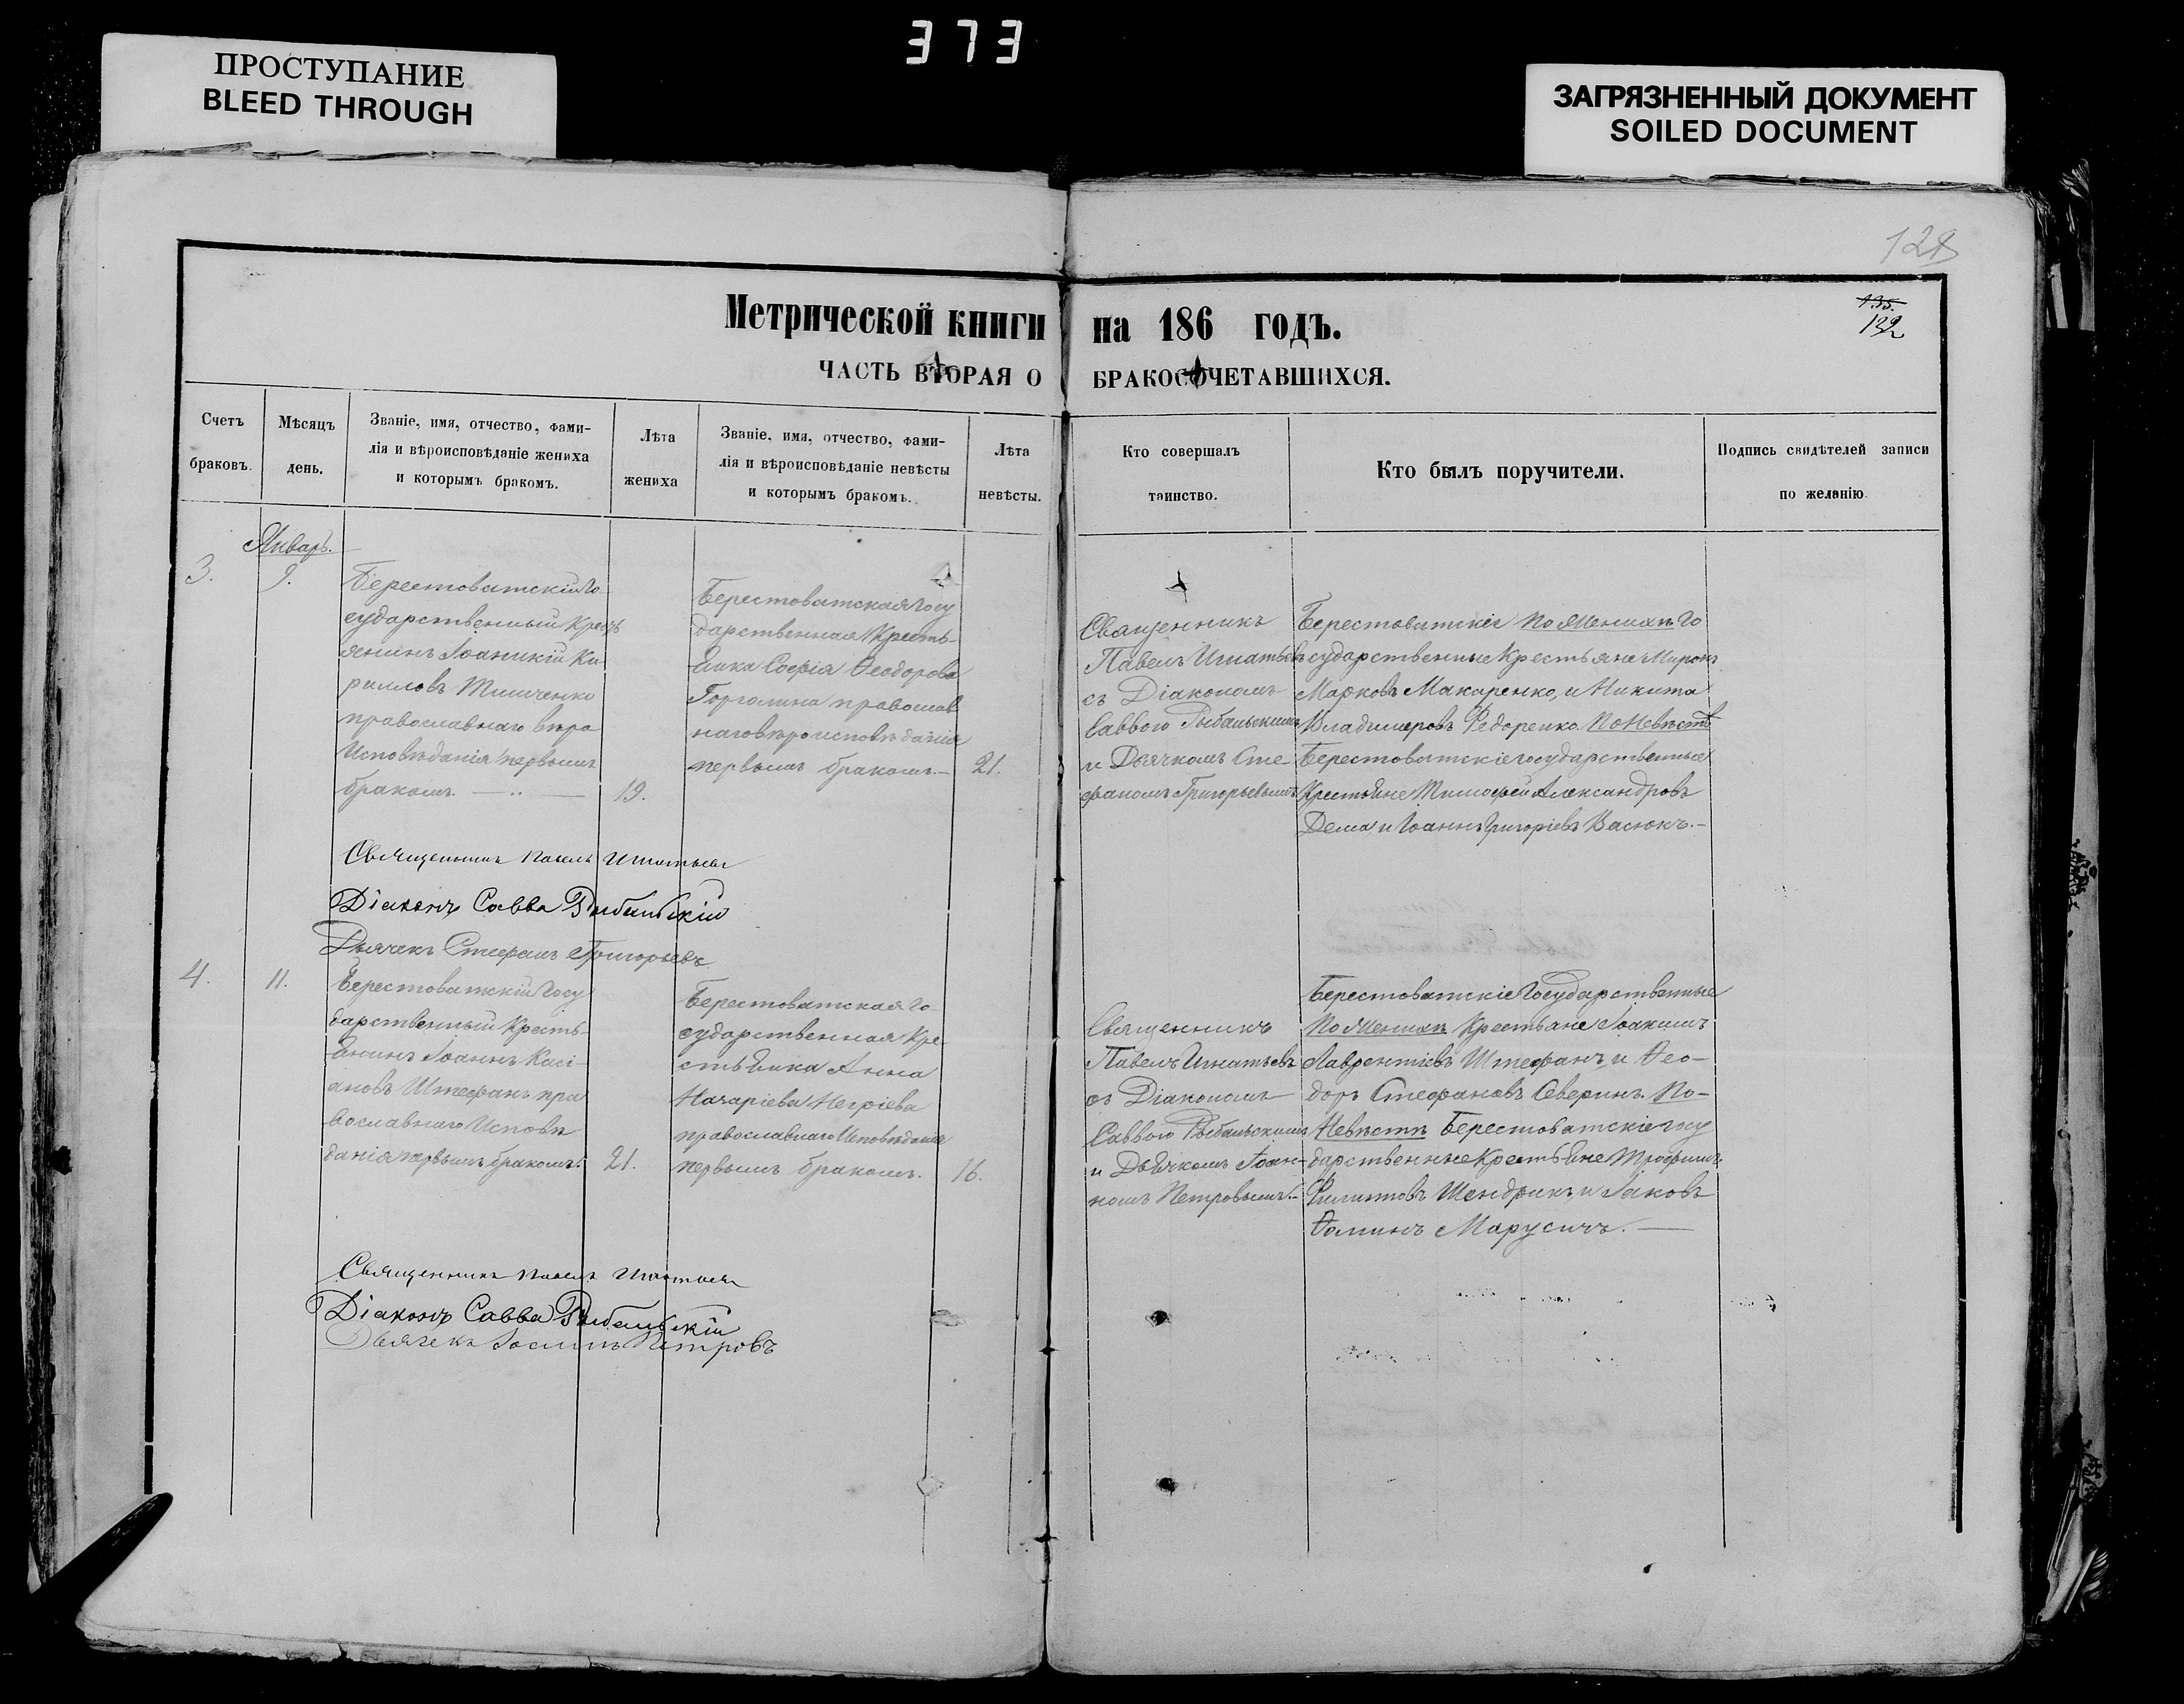 373
ПРОСТУПАНИЕ
BLEED THROUGH
ЗАГРЯЗНЕННЫЙ ДОКУМЕНТ
SOILED DOCUMENT
128
135.
132
Метрической книги на 186 годъ.
ЧАСТЬ ВТОРАЯ О БРАКОСОЧЕТАВШИХСЯ.
Счетъ
браковъ.
Мѣсяцъ
день.
Званіе, имя, отчество, фами-
лія и вѣроисповѣданіе жениха
и которымъ бракомъ.
Лѣта
жениха
Званіе, имя, отчество, фами-
лія и вѣроисповѣданіе невѣсты
и которымъ бракомъ.
Лѣта
невѣсты.
Кто совершалъ
таинство.
Кто былъ поручители.
Подпись свидѣтелей записи
по желанію.
Январь.
3.
9.
Берестоватскій Го
сударственный Кресть
янинъ Іоанникій Ки
рилловъ Тимченко
православнаго вѣро
Исповѣданія первымъ
бракомъ.
19.
Берестоватская Госу
дарственная Кресть-
янка Софія Ѳеодорова
Горголина православ
наго вѣроисповѣданія
первымъ бракомъ.-
21.
Священникъ
Павелъ Игнатьевъ
съ Діакономъ
Саввою Рыбальскимъ
и Дьячкомъ Сте
фаномъ Григорьевымъ
Берестоватскіе По Женихѣ Го
сударственные Крестьяне Миронъ
Марковъ Макаренко, и Никита
Владимеровъ Федоренко. По Невѣстѣ
Берестоватскіе государственные
Крестьяне Тимофей Александровъ
Дема и Іоаннъ Григоріевъ Васюкъ.-
Священникъ Павелъ Игнатьевъ
Діаконъ Савва Рыбальскій
Дьячекъ Стефанъ Григорьевъ
4.
11.
Берестоватскій Госу
дарственный Кресть-
янинъ Іоаннъ Касі-
ановъ Штефанъ пра
вославнаго Исповѣ
данія первымъ бракомъ.
21.
Берестоватская Го
сударственная Кре-
стьянка Анна
Назаріева Негріева
православнаго Исповѣданія
первымъ бракомъ.
16.
Священникъ
Павелъ Игнатьевъ
съ Діакономъ
Саввою Рыбальскимъ
и Дьячкомъ Іоан-
номъ Петровымъ.-
Берестоватскіе Государственные
По Женихѣ Крестьяне Іоакимъ
Лаврентіевъ Штефанъ, и Ѳео-
доръ Стефановъ Северинъ. По-
Невѣстѣ Берестоватскіе госу
дарственные Крестьяне Трофимъ
Филиповъ Шендрикъ, и Іаковъ
Ѳоминъ Марусичъ.
Священникъ Павелъ Игнатьевъ
Діаконъ Савва Рыбальскій
Дьячекъ Іоаннъ Петровъ